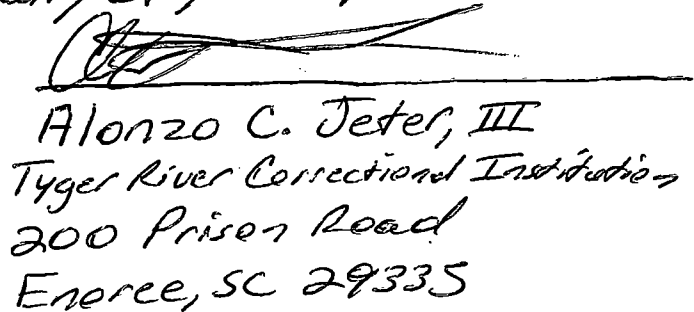 Alonzo C. Jeter, III
Tyger River Correctional Institution
200 Prison Road
Enoree, SC 29335